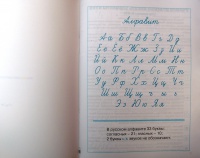 Алфавит
Аа Бб Вв Гг Дд
Ее Ёё Жж Зз Ии
Йй Кк Лл Мм Нн
Оо Пп Рр Сс Тт
Уу Фф Хх Цц Чч
Шш Щщ ъ ы ь
Ээ Юю Яя
В русском алфавите 33 буквы:
согласных - 21; гласных - 10;
2 буквы - звуков не обозначают.